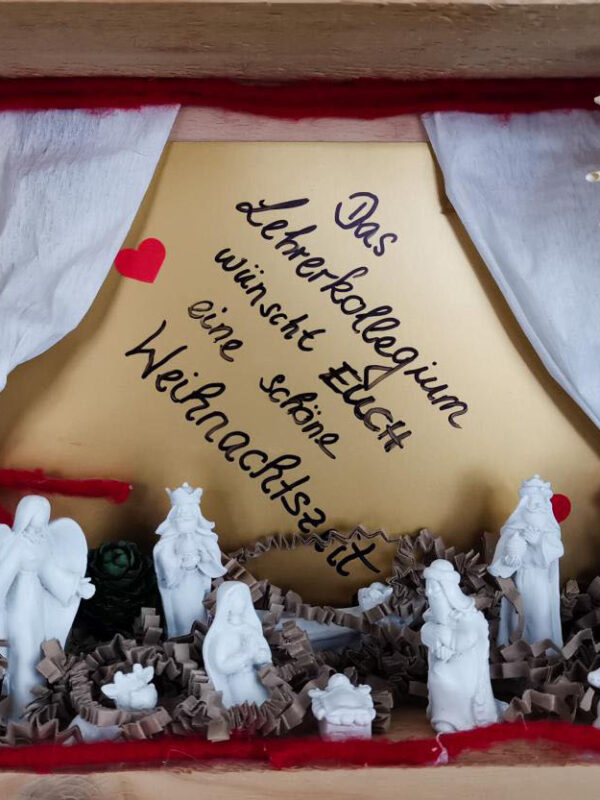 Das
Lehrerkollegium
wünscht EUCH
eine schöne
Weihnachtszeit